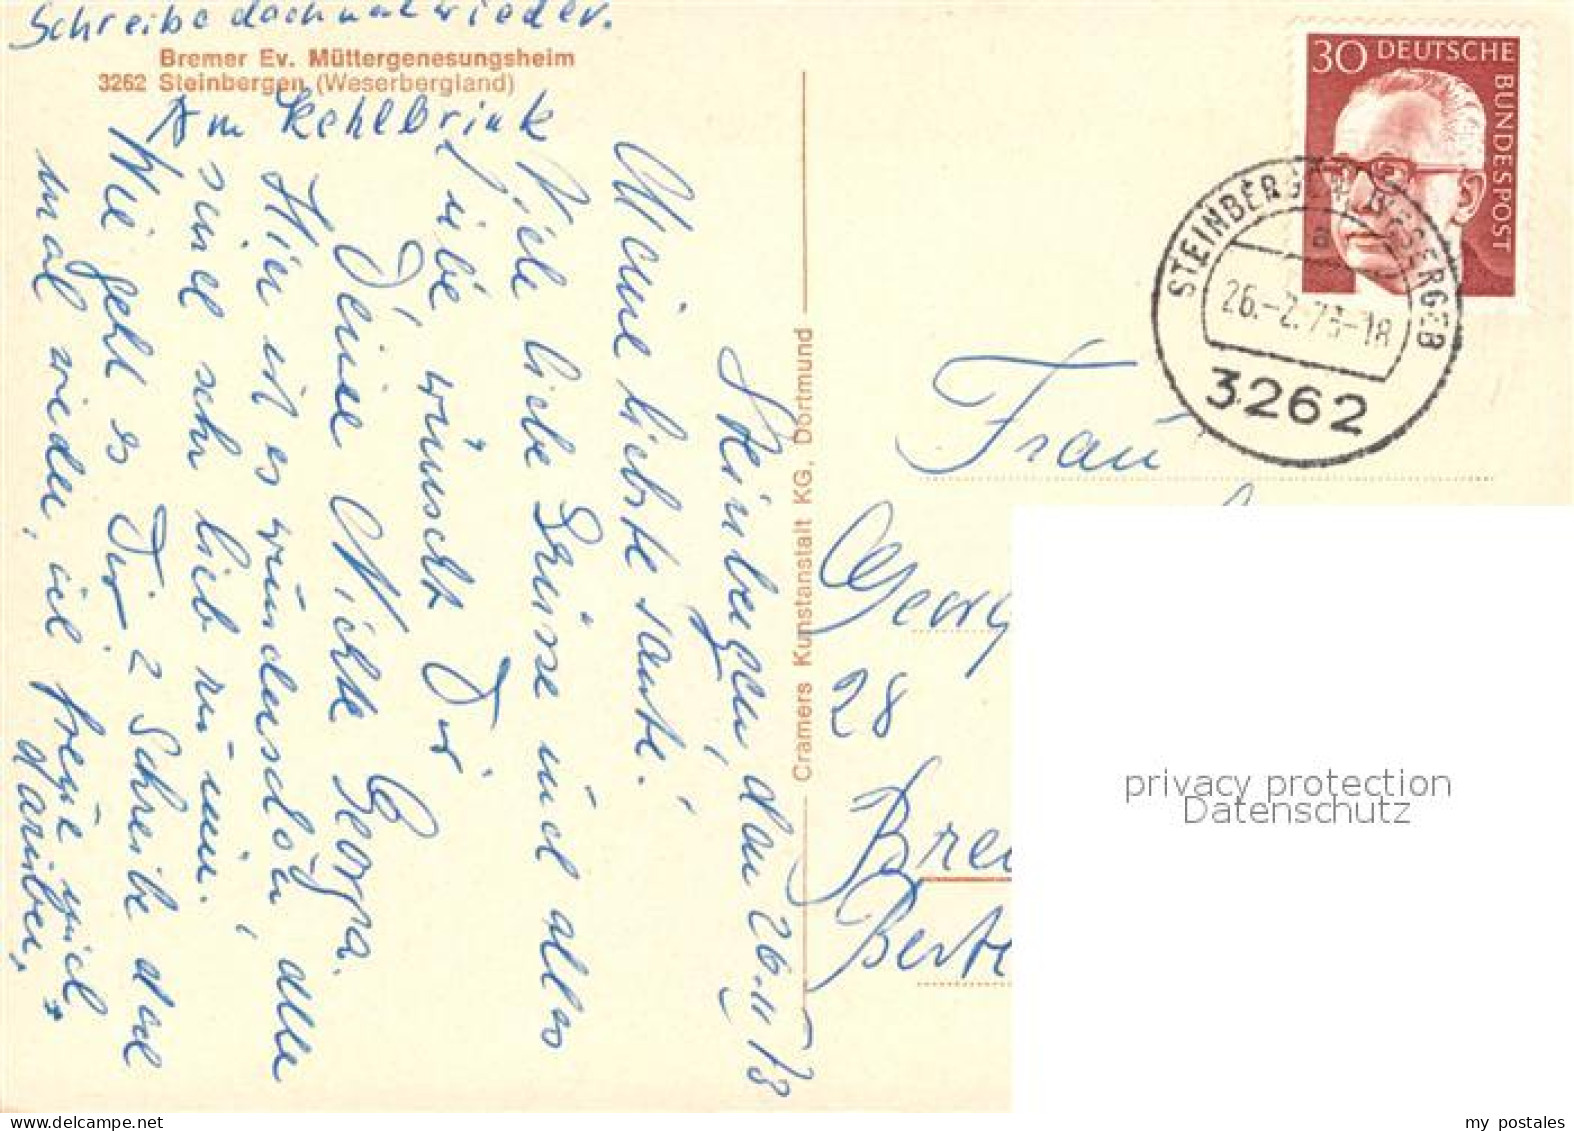 Schreibe doch mal wieder.
Bremer Ev. Müttergenesungsheim
3262 Steinbergen (Weserbergland)
Am Kehlbrink
Steinbergen, den 26. II 73
Meine liebste Tante!
Viele liebe Grüsse und alles
Liebe wünscht Dir
Deine Nichte Georga.
Hier ist es wunderschön, alle
sind sehr lieb zu mir.
Wie geht es Dir? Schreibe doch
mal wieder, ich freue mich
darüber.
Cramers Kunstanstalt KG, Dortmund
30 DEUTSCHE
BUNDESPOST
STEINBERGEN
26.-2.73-18
3262
Frau
Georg
28
Bre
privacy protection
Datenschutz
my postales